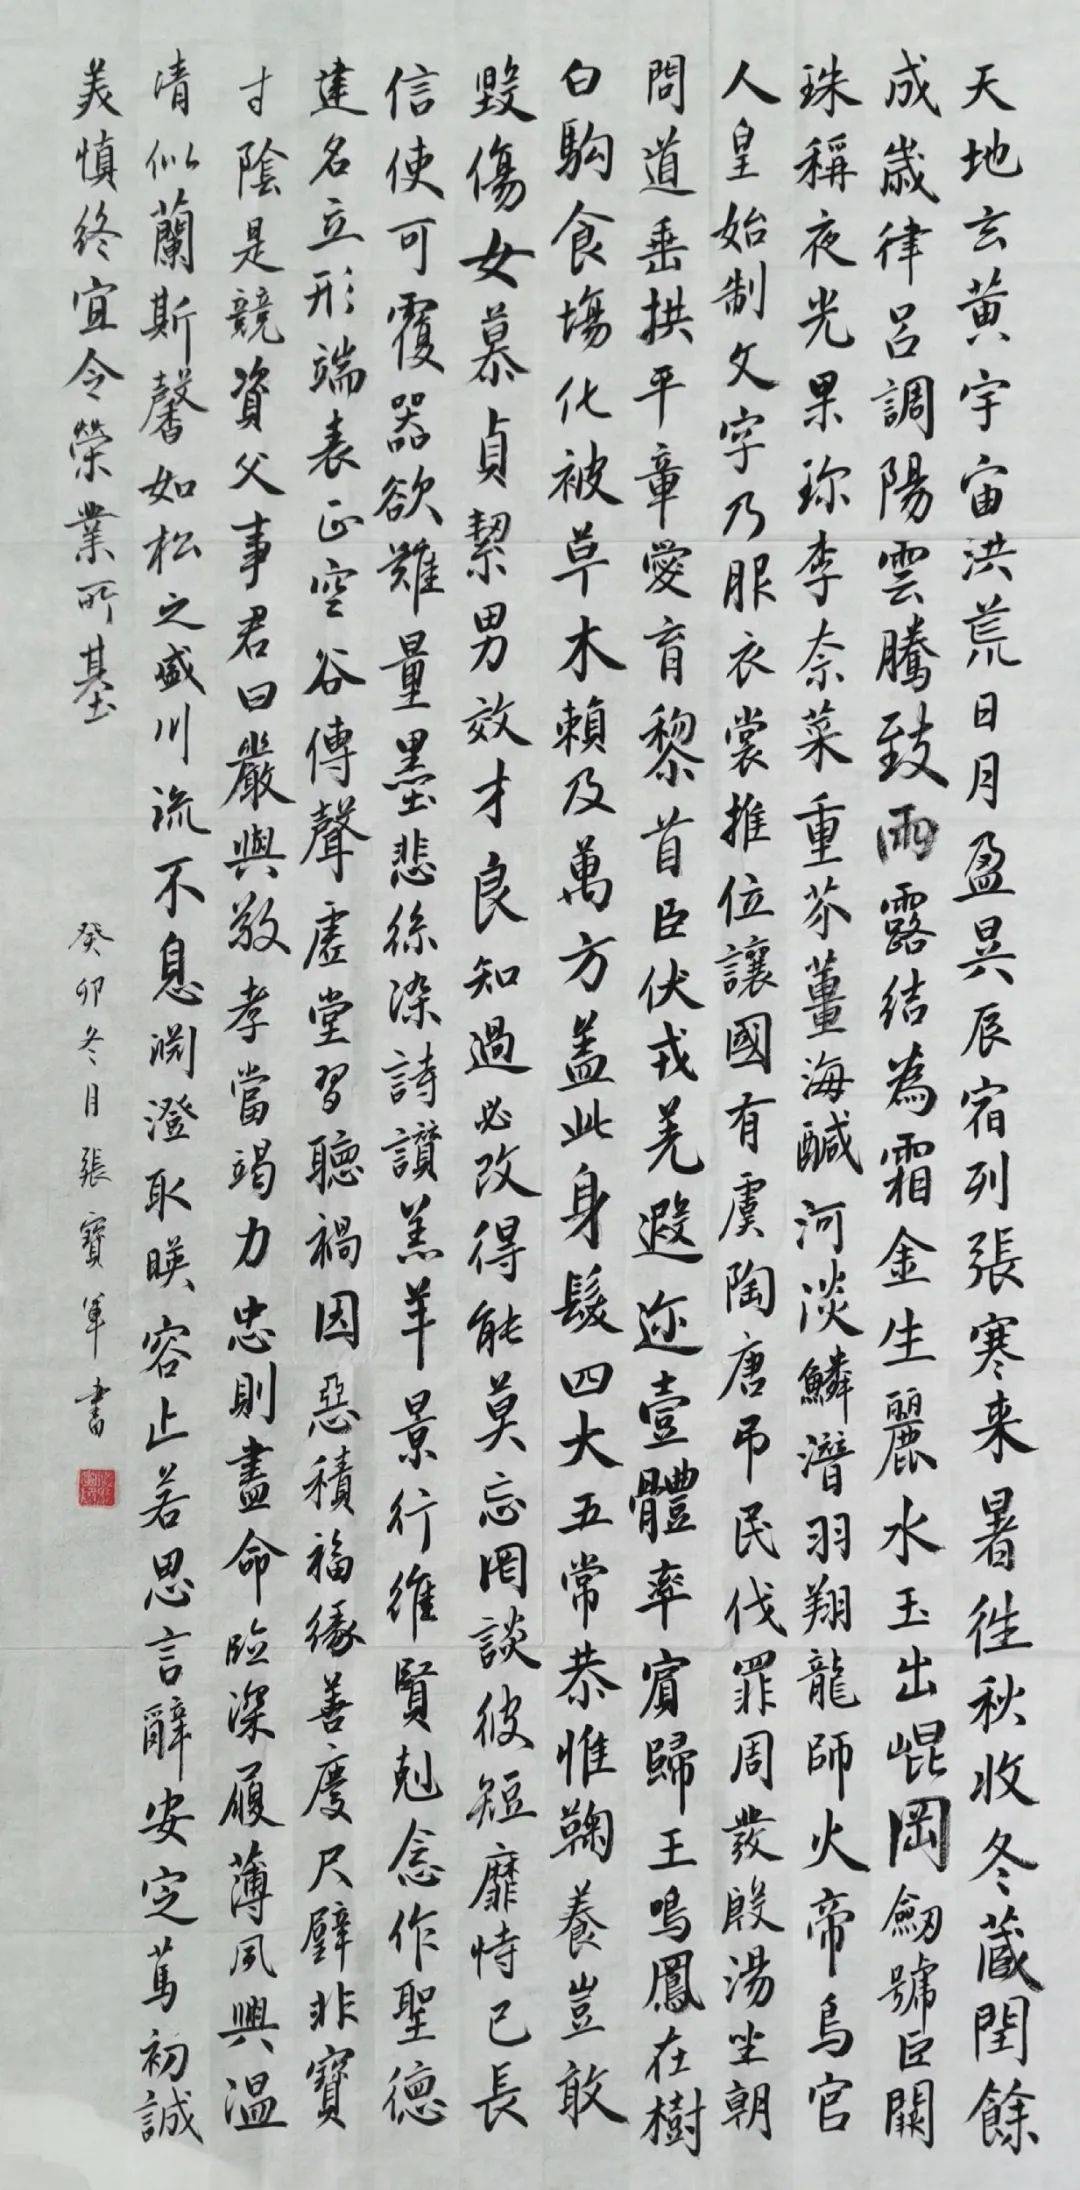 天地玄黄宇宙洪荒日月盈昃辰宿列張寒来暑往秋收冬蔵閏餘
成歲律呂調陽雲騰致雨露結為霜金生麗水玉出崐岡劒號巨闕
珠稱夜光果珎李奈菜重芥薑海醎河淡鱗潛羽翔龍師火帝鳥官
人皇始制文字乃服衣裳推位讓國有虞陶唐吊民伐罪周發殷湯坐朝
問道垂拱平章愛育黎首臣伏戎羌遐迩壹體率賓歸王鳴鳳在樹
白駒食場化被草木賴及萬方盖此身髮四大五常恭惟鞠養豈敢
毀傷女慕貞絜男效才良知過必改得能莫忘罔談彼短靡恃己長
信使可覆器欲難量墨悲絲染詩讚羔羊景行維賢剋念作聖德
建名立形端表正空谷傳聲虛堂習聽禍因惡積福緣善慶尺璧非寶
寸陰是競資父事君曰嚴與敬孝當竭力忠則盡命臨深履薄夙興温
清似蘭斯馨如松之盛川流不息渕澄取暎容止若思言辭安定篤初誠
美慎終宜令榮業所基
癸卯冬月張寶軍書